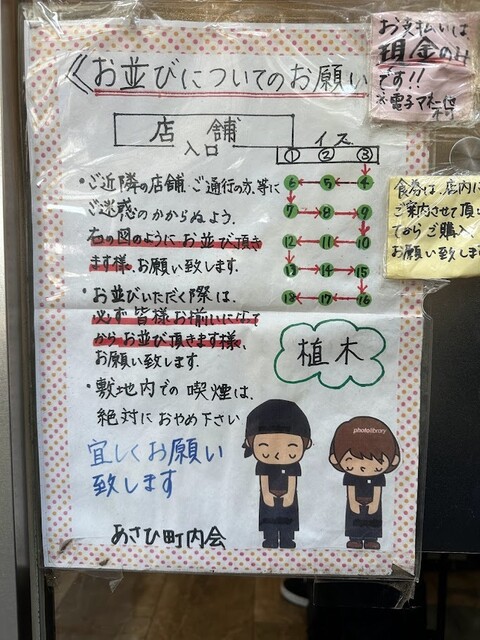 お並びについてのお願い
店舗
入口
イス
① ② ③
6 5 4
7 8 9
12 11 10
13 14 15
18 17 16
・ご近隣の店舗、ご通行の方、等に
ご迷惑のかからぬよう、
右の図のようにお並び頂き
ます様、お願い致します。
・お並びいただく際は、
必ず皆様お揃いになって
からお並び頂きます様、
お願い致します。
植木
・敷地内での喫煙は、
絶対におやめ下さい
宜しくお願い
致します
あさひ町内会
photolibrary
お支払いは
現金のみ
です!!
食券は、店内に
ご案内させて頂い
てからご購入
お願い致しま